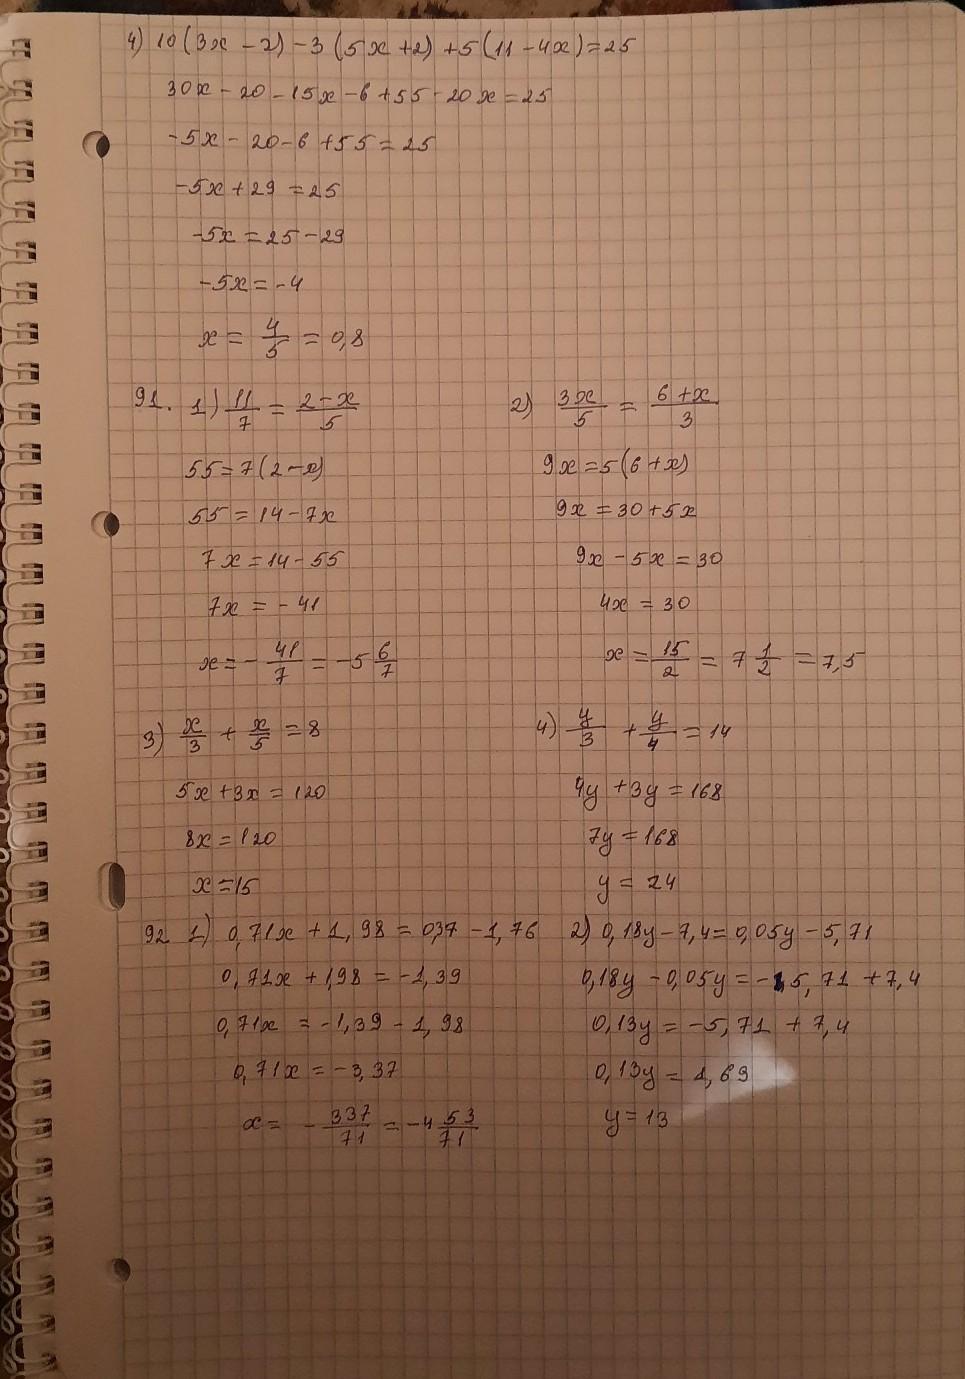 4) 10(3x - 2) - 3(5x + 2) + 5(11 - 4x) = 25
30x - 20 - 15x - 6 + 55 - 20x = 25
-5x - 20 - 6 + 55 = 25
-5x + 29 = 25
-5x = 25 - 29
-5x = -4
x = 4/5 = 0,8
91. 1) 11/7 = (2 - x)/5
55 = 7(2 - x)
55 = 14 - 7x
7x = 14 - 55
7x = -41
x = -41/7 = -5 6/7
2) 3x/5 = (6 + x)/3
9x = 5(6 + x)
9x = 30 + 5x
9x - 5x = 30
4x = 30
x = 15/2 = 7 1/2 = 7,5
3) x/3 + x/5 = 8
5x + 3x = 120
8x = 120
x = 15
4) y/3 + y/4 = 14
4y + 3y = 168
7y = 168
y = 24
92 1) 0,71x + 1,98 = 0,37 - 1,76
0,71x + 1,98 = -1,39
0,71x = -1,39 - 1,98
0,71x = -3,37
x = -337/71 = -4 53/71
2) 0,18y - 7,4 = 0,05y - 5,71
0,18y - 0,05y = -5,71 + 7,4
0,13y = -5,71 + 7,4
0,13y = 1,69
y = 13